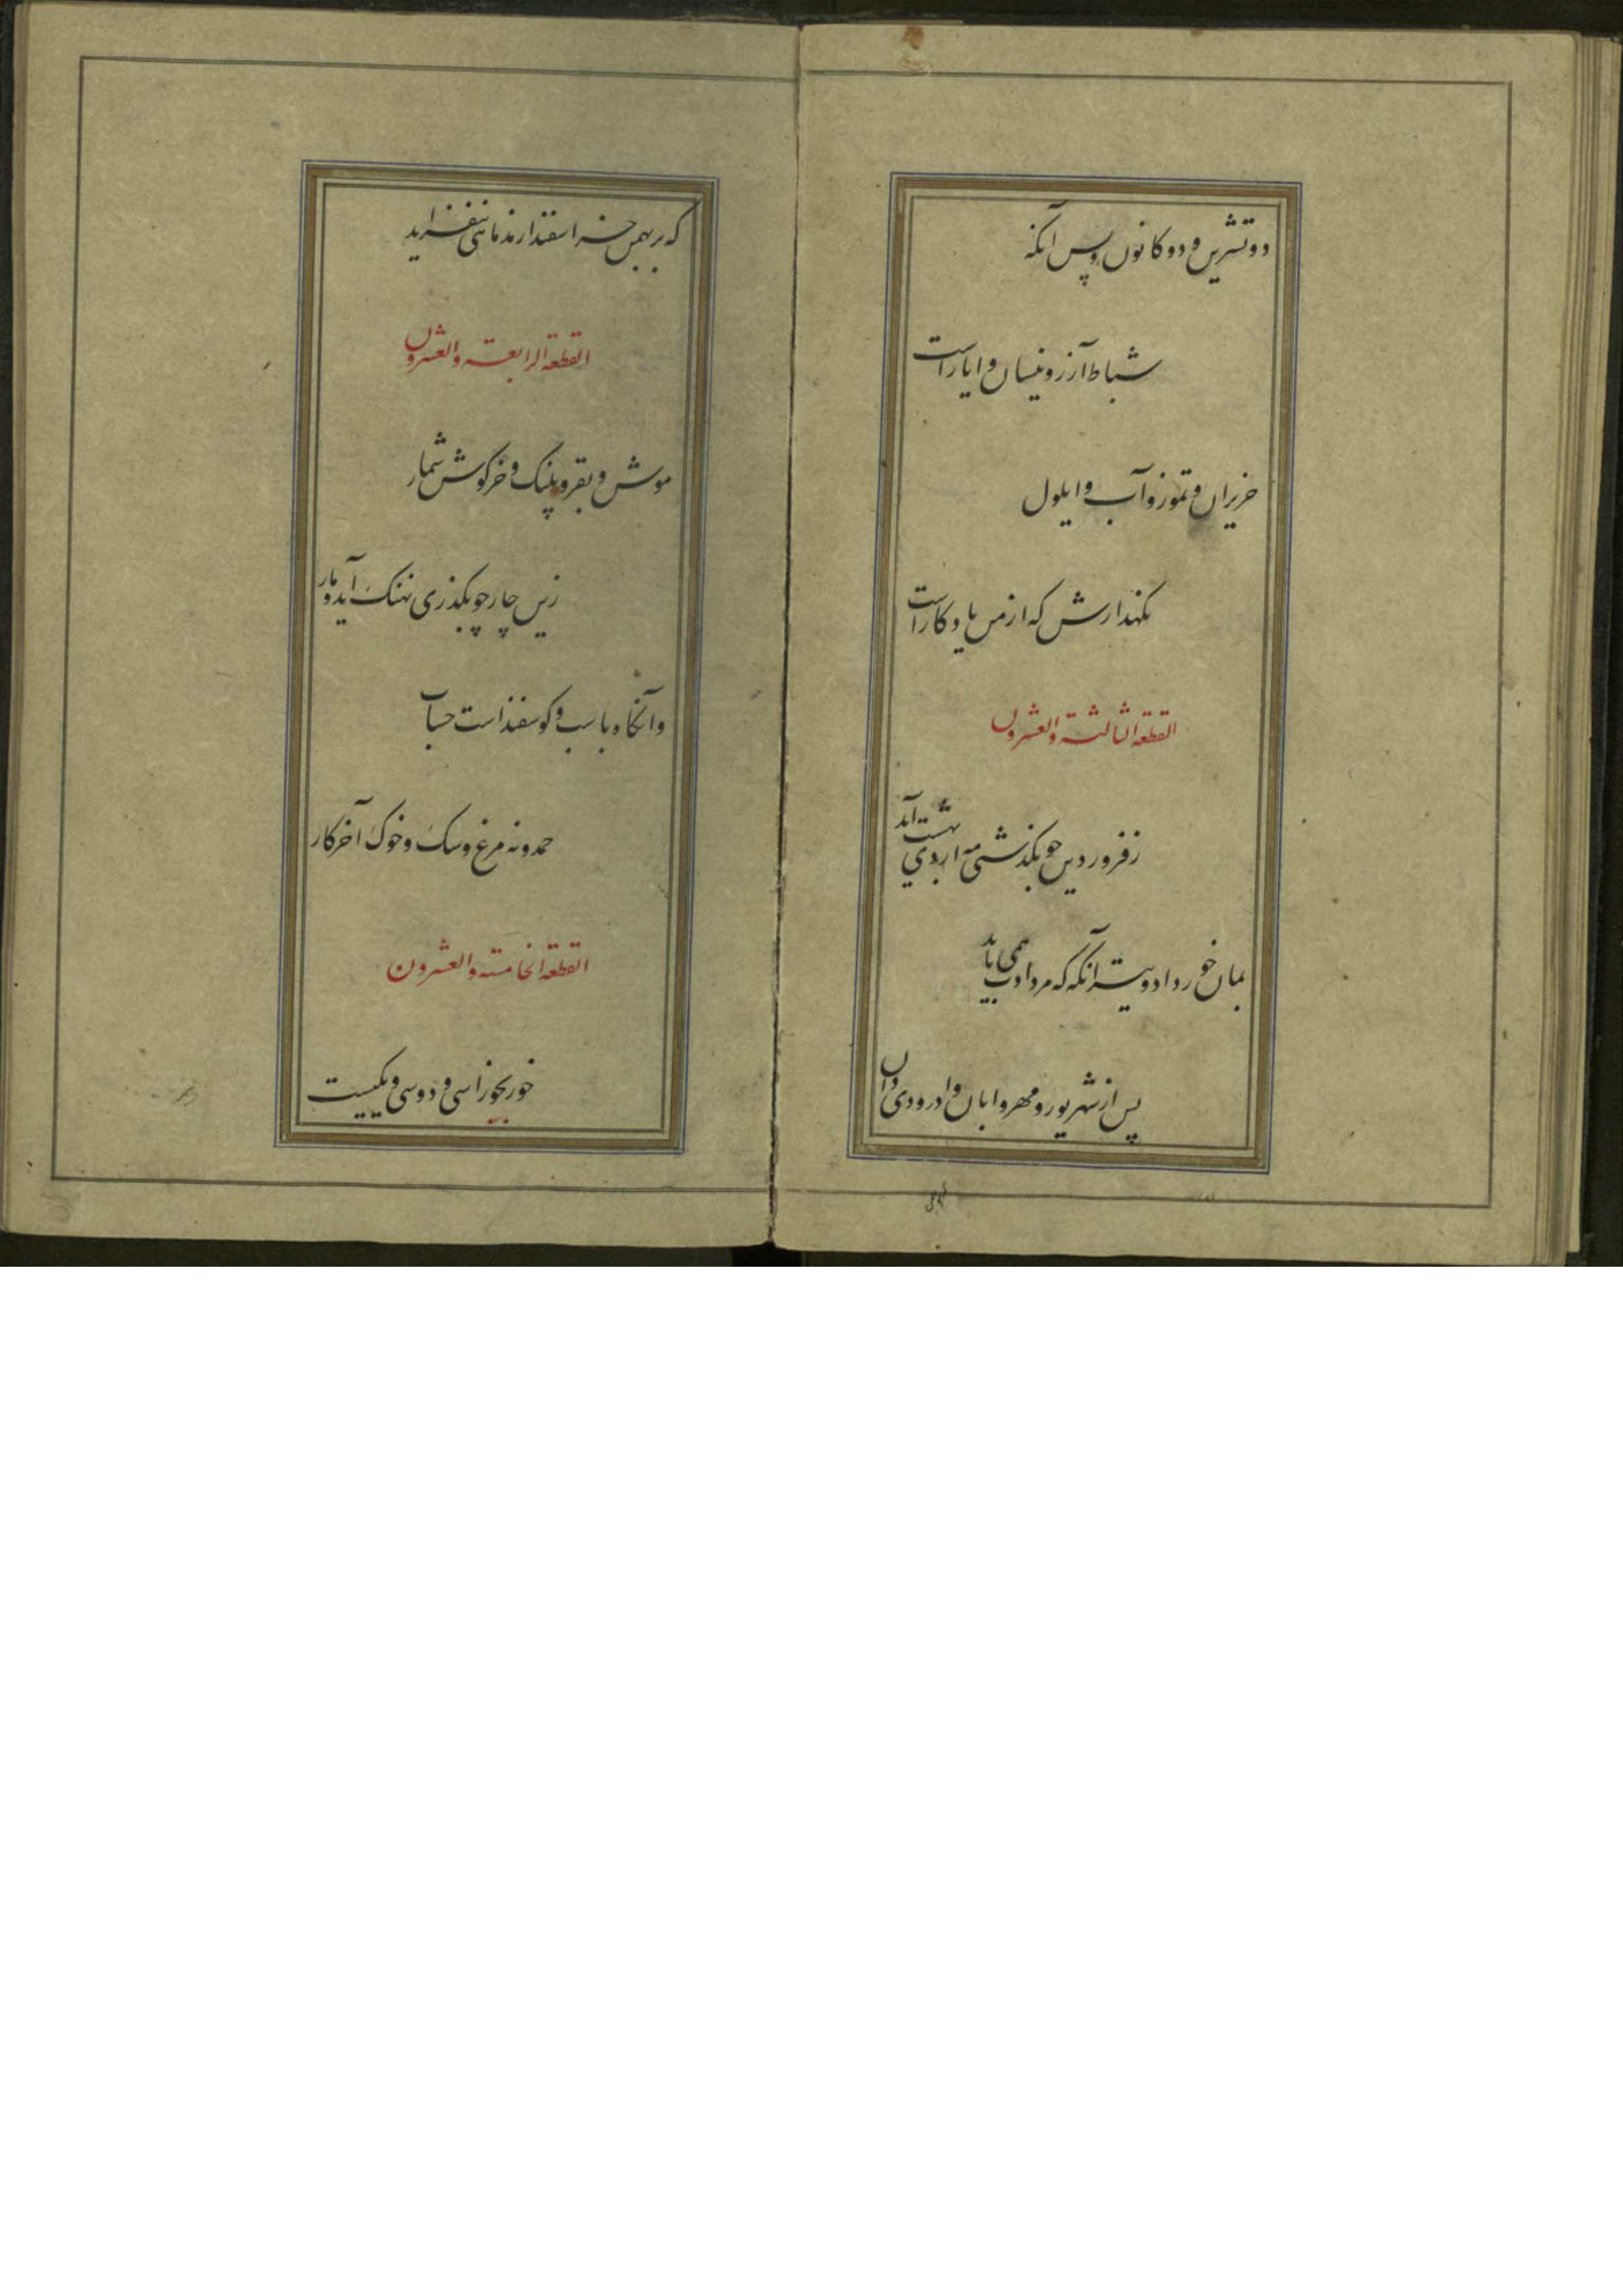 دو تشرین و دو کانون و پس آنکه
شباط آزر و نیسان و ایار است
حزیران و تموز و آب و ایلول
نکهدارش که از من یادکار است
القطعة الثالثة والعشرون
ز فروردین چو بکذشتی مه اردی بهشت آید
بمان خورداد و تیر آنکه که مردادت همی باید
پس از شهریور و مهر و ابان و اذر و دی دان
که بر بهمن جز اسفندارمذ ماهی نیفزاید
القطعة الرابعة والعشرون
موش و بقر و پلنک و خرکوش شمار
زین چار چو بکذری نهنک آید و مار
وانکاه باسب و کوسفند است حساب
حمدونه مرغ و سک و خوک آخر کار
القطعة الخامسة والعشرون
خور بجوزا سی و دو سی و یکیست